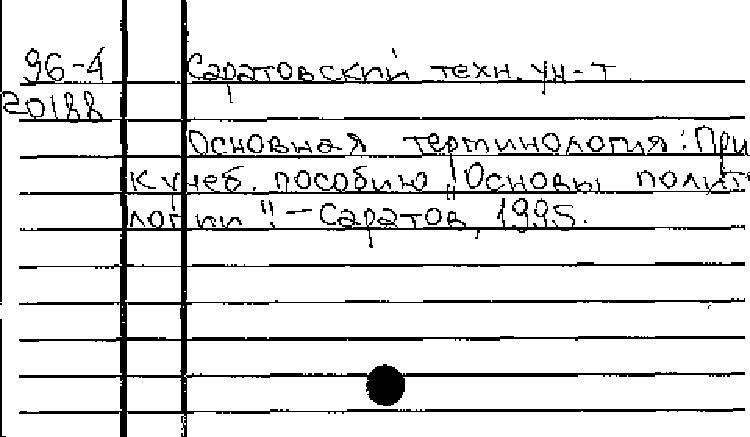 96-4 Саратовский техн. ун-т
20188
Основная терминология: При
к учеб. пособию "Основы полит
логии". - Саратов, 1995.